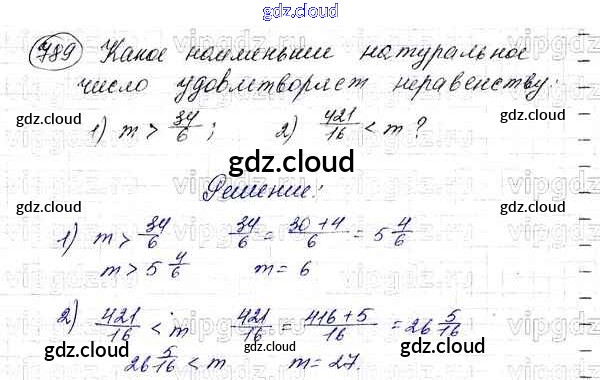 gdz.cloud
789 Какое наименьшее натуральное
число удовлетворяет неравенству:
1) m > 34/6 ; 2) 421/16 < m ?
gdz.cloud
gdz.cloud
gdz.cloud
gdz.cloud
Решение:
gdz.cloud
gdz.cloud
1) m > 34/6 34/6 = 30+4/6 = 5 4/6
m > 5 4/6 m = 6
gdz.cloud
2) 421/16 < m 421/16 = 416+5/16 = 26 5/16
gdz.cloud
gdz.cloud
26 5/16 < m m = 27.
gdz.cloud